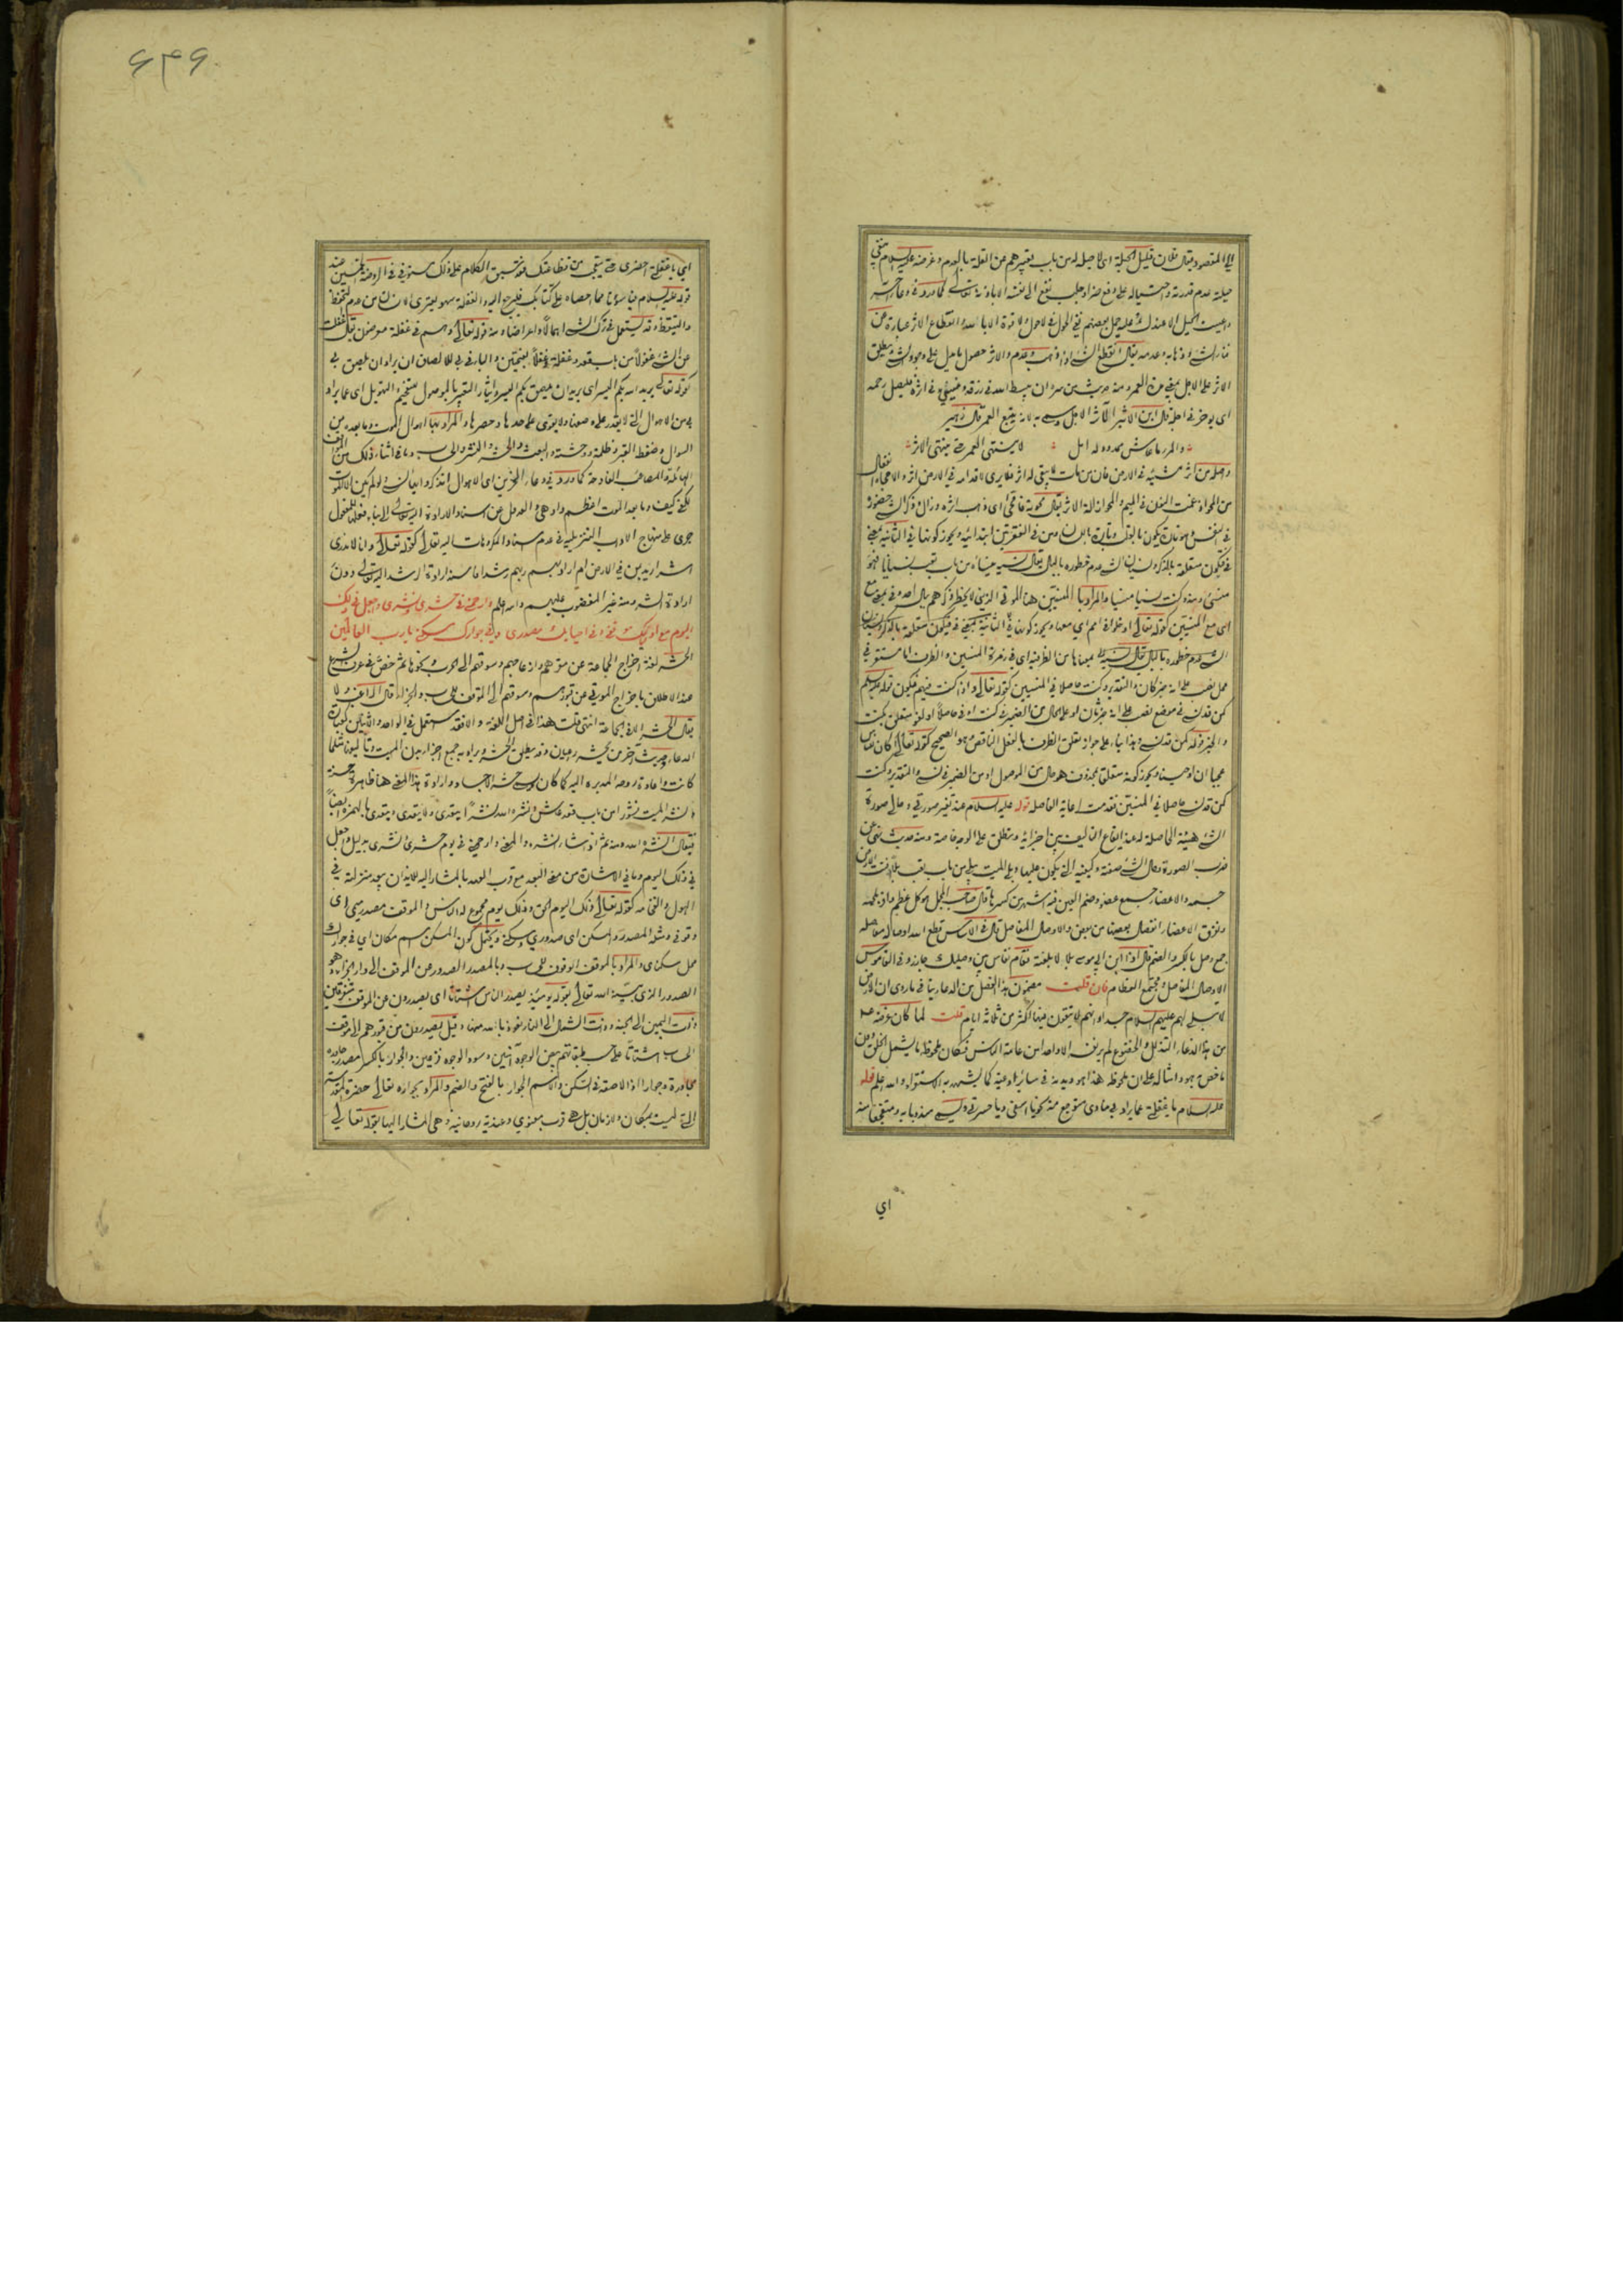 الى المقصود يقال فلان قليل الحيلة اى لا حيلة له من باب تعبيرهم عن القلة بالعدم وغرضه عليه السلام نفي
حيلته عدم قدرته واحتياله على دفع ضر او جلب نفع الى نفسه الا باذنه تعالى كما ورد في دعاء آخر
وعليه حمل بعضهم نفي الحول في لا حول ولا قوة الا بالله وانقطاع الاثر عبارة عن
ذهابه وعدمه يقال انقطع الشئ اذا ذهب وعدم والاثر حصول ما يدل على وجود الشئ ويطلق
الاثر على الاجل بمعنى مدة العمر ومنه حديث من سره ان يبسط الله في رزقه وينسئ في اثره فليصل رحمه
اى يوخر في اجله قال ابن الاثير الاثر الاجل وسمى به لانه يتبع العمر قال زهير
والمرء ما عاش ممدود له امل لا ينتهى العمر حتى ينتهى الاثر
واصله من اثر مشيه في الارض فان من مات لا يبقى له اثر فلا يرى لاقدامه في الارض اثر والامحاء انفعال
من المحو ادغمت النون في الميم والمحو ازالة الاثر يقال محوته فامحى اى ذهب اثره وزال وذكر الشئ حضوره
في النفس وهو تارة يكون بالقلب وتارة باللسان ومن في الفقرتين ابتدائية ويجوز كونها في الثانية بمعنى
في فتكون متعلقة بالذكر ونسيان الشئ عدم خطوره بالبال يقال نسيه ينساه من باب تعب نسيانا فهو
منسى ومنه وكنت نسيا منسيا والمراد بالمنسيين هنا الموتى الذين لا يخطر ذكرهم ببال احد وفي بمعنى مع
اى مع المنسيين كقوله تعالى ادخلوا في امم اى معهم
محل نصب على انه خبر كان والتقدير وكنت حاصلا في المنسيين كقوله تعالى واذا كنت فيهم فيكون قوله عليه السلام
كمن قد نسى في موضع نصب على انه خبر ثان او على الحال من الضمير في كنت او في حاصلا او لغو متعلق بكنت
والخبر قوله كمن قد نسى وهذا بناء على جواز تعلق الظرف بالفعل الناقص وهو الصحيح كقوله تعالى اكان للناس
عجبا ان اوحينا ويجوز كونه متعلقا بمحذوف هو حال من الموصول او من الضمير في نسى والتقدير وكنت
كمن قد نسى حاصلا في المنسيين فقدمت رعاية للفاصلة قوله عليه السلام عند تغير صورتي وحالي صورة
الشئ هيئته الحاصلة له عند ايقاع التاليف بين اجزائه وتطلق على الوجه خاصة ومنه حديث نهى عن
ضرب الصورة وحال الشئ صفته وكيفيته التى يكون عليها وبلى الميت يبلى من باب تعب
جسمه والاعضاء جمع عضو وضم العين فيه اشهر من كسرها قال صاحب المجمل هو كل عظم وافر بلحمه
وتفرق الاعضاء انفصال بعضها من بعض والاوصال المفاصل قال في الاساس قطع الله اوصاله مفاصله
جمع وصل بالكسر والضم قال اذا ابن ابى موسى بلالا بلغته فقام بفاس بين وصليك جازر وفي القاموس
الاوصال المفاصل او مجتمع العظام فان قلت مضمون هذا الفصل من الدعاء ينافي ما روى ان الارض
لا تبلى لهم عليهم السلام جسدا وانهم لا يبقون فيها اكثر من ثلاثة ايام قلت لما كان غرضه عم
من هذا الدعاء التذلل والخضوع لم ير نفسه الا واحدا من عامة الناس فكان ملحوظه ما يشمل الخلق دون
ما خص به هو وامثاله على ان ملحوظه هذا هو ديدنه في سائر ادعيته كما يشهد به الاستقراء والله اعلم قوله
عليه السلام يا غفلتى عما يراد بي منادى متوجع منه نحو يا اسفى ويا حسرتى وليس مندوبا
اي
٦٣٦
اى يا غفلتى احضرى حتى يتعجب من فظاعتك وقد سبق الكلام على ذلك مستوفي في الروضة عند
قوله عليه السلام فيا سوأتا مما احصاه على كتابك فليرجع اليه والغفلة سهو يعترى الانسان من عدم التحفظ
والتيقظ وقد تستعمل في ترك الشئ اهمالا واعراضا ومنه قوله تعالى وهم في غفلة معرضون يقال غفلت
عن الشئ غفولا من باب قعد وغفلة وغفلا بفتحتين والباء في بي للالصاق اى يراد ان يلصق بي
كقوله تعالى يريد الله بكم اليسر اى يريد ان يلصق بكم اليسر وايثار التعبير بالموصول للتفخيم والتهويل اى عما يراد
بي من الاهوال التى لا يقدر على وصفها ولا يقوى على عدها وحصرها والمراد بها اهوال الموت وما بعده من
السوال وضغط القبر وظلمته ووحشته والبعث والحشر والنشر والحساب وما في اثناء ذلك من
الهائلة والمصائب الفادحة كما ورد في دعاء الحزين اى الاهوال اتذكر وايها انسى ولو لم يكن الا الموت
لكفى كيف وما بعد الموت اعظم وادهى والعدول عن اسناد الارادة اليه تعالى الى البناء للمفعول
جرى على منهاج الاداب التنزيلية في عدم اسناد المكروهات اليه تعالى كقوله تعالى وانا لا ندرى
اشر اريد بمن في الارض ام اراد بهم ربهم رشدا فاسند ارادة الرشد اليه تعالى دون
ارادة الشر ومنه غير المغضوب عليهم والله اعلم وارحمني في حشري ونشري واجعل في ذلك
اليوم مع اوليائك موقفي وفي احبائك مصدري وفي جوارك مسكني يا رب العالمين
الحشر لغة اخراج الجماعة عن مقرهم وازعاجهم وسوقهم الى الحرب ونحوها ثم خص في عرف الشرع
عند الاطلاق باخراج الموتى عن قبورهم وسوقهم الى الموقف للحساب والجزاء قال الراغب ولا
يقال الحشر الا في الجماعة انتهى قلت هذا في اصل اللغة والا فقد استعمل في الواحد والاثنين
وحديث آخر من يحشر رجلان وقد يطلق الحشر ويراد به جمع اجزاء بدن الميت وتاليفها مثلما
كانت واعادة روحه المدبرة اليه كما كان وسمى حشر الاجساد وارادة هذا المعنى هنا ظاهرة حسنة
ونشر الميت نشورا من باب قعد عاش ونشره الله نشرا يتعدى ولا يتعدى ويتعدى بالهمزة ايضا
فيقال انشره الله ومنه ثم اذا شاء انشره والمعنى وارحمني في يوم حشري ونشري بدليل واجعل
في ذلك اليوم وما في الاشارة من معنى البعد مع قرب العهد بالمشار اليه للايذان ببعد منزلته في
الهول والفخامة كقوله تعالى ذلك اليوم الحق وذلك يوم مجموع له الناس والموقف مصدر ميمي اى
وقوفي ومثله المصدر والمسكن اى صدوري وسكني ويحتمل كون المسكن اسم مكان اى في جوارك
محل سكناى والمراد بالموقف الوقوف للحساب وبالمصدر الصدور عن الموقف الى دار الجزاء وهو
الصدور الذي بينه الله تعالى بقوله يومئذ يصدر الناس اشتاتا اى يصدرون عن الموقف متفرقين
ذات اليمين الى الجنة وذات الشمال الى النار نعوذ بالله منها وقيل يصدرون من قبورهم الى موقف
الحساب اشتاتا على حسب طبقاتهم بيض الوجوه آمنين وسود الوجوه فزعين والجوار بالكسر مصدر جاوره
مجاورة وجوارا اذا لاصقه في السكن والاسم الجوار بالفتح والضم والمراد بجواره تعالى حضرة
التى ليست بمكان ولا زمان بل هى قرب معنوي وعندية روحانية وهى المشار اليها بقوله تعالى